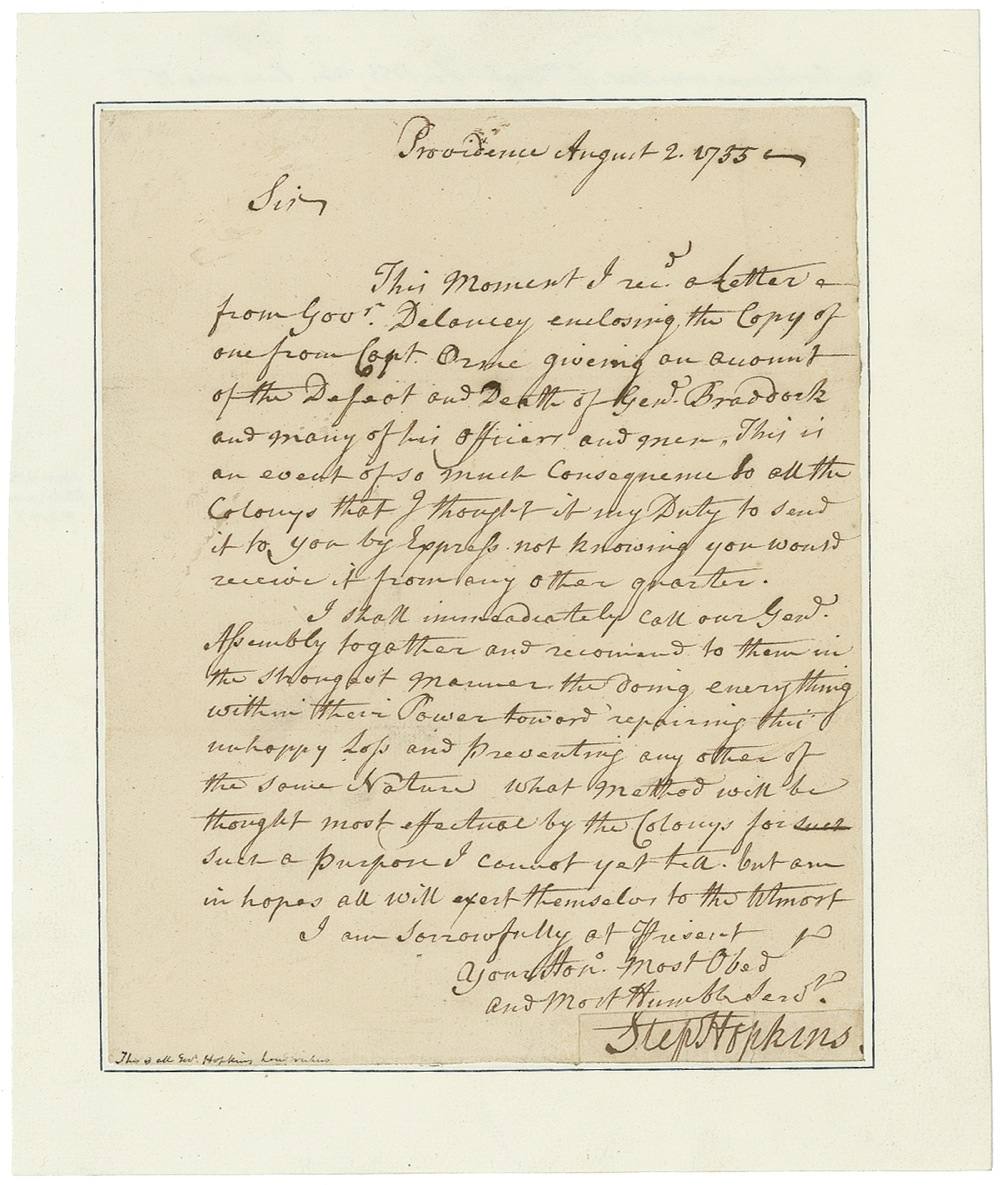 Providence August 2. 1755
Sir
This Moment I rec.d a Letter
from Gov.r Delancey enclosing the Copy of
one from Capt. Orme giving an account
of the Defeat and Death of Gen.l Braddock
and many of his officers and men, This is
an event of so much Consequence to all the
Colonys that I thought it my Duty to send
it to you by Express not knowing you would
receive it from any other quarter.
I shall immeadiately call our Gen.l
Assembly togather and recomend to them in
the strongest manner the doing everything
within their Power toward repairing this
unhappy Loss and preventing any other of
the same Nature what Method will be
thought most effectual by the Colonys for such
such a purpose I cannot yet tell. but am
in hopes all will exert themselves to the utmost
I am sorrowfully at Present
Your Hon.rs Most Obed
and Most Humble Serv.t
Step Hopkins.
This is all Gov.r Hopkins